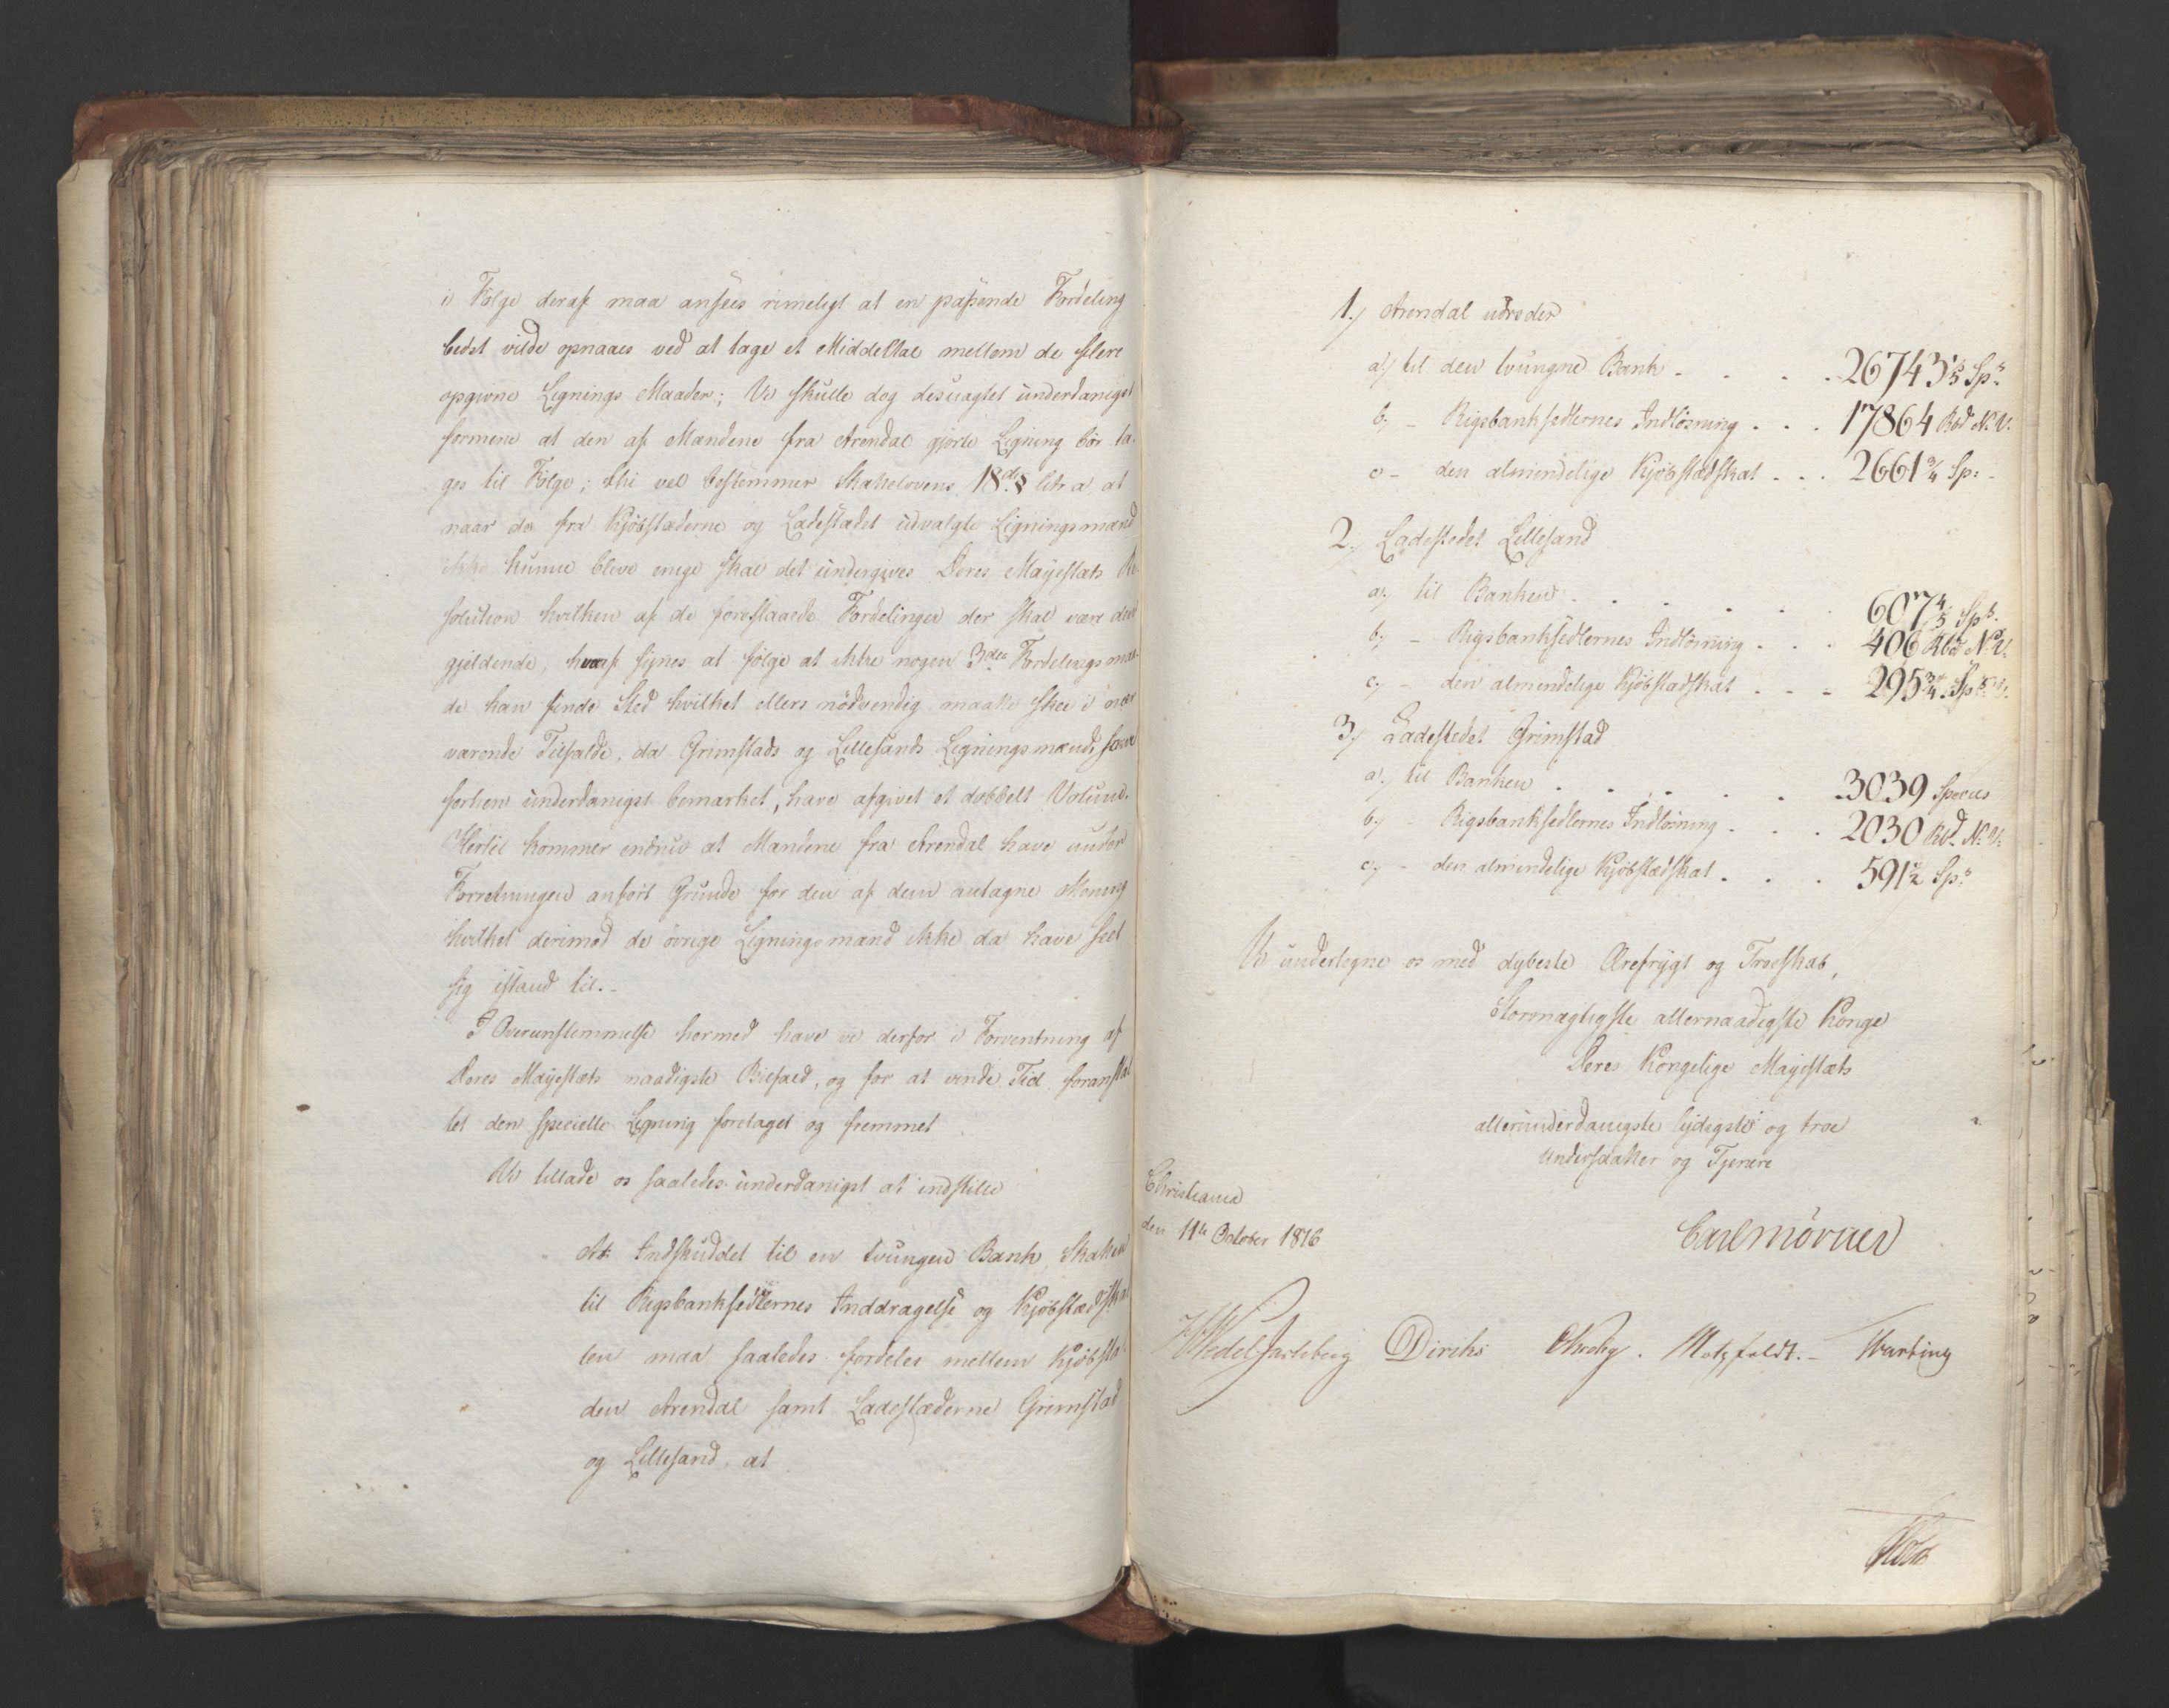 i Følge deraf maa ansees rimeligt at en passende Fordeling
bedst vilde opnaaes ved at tage et Middeltal mellem de flere
opgivne Lignings Maader; Vi skulle dog desuagtet underdanigst
formene at den af Mændene fra Arendal gjorte Ligning bør ta-
ges til Følge; thi vel bestemmer Skattelovens 18de § litr a, at
naar de fra Kjøbstæderne og Ladestædet udvalgte Ligningsmænd
ikke kunne blive enige skal det undergives Deres Majestæts Re-
solution hvilken af de foreslaaede Fordelinger der skal være den
gjeldende, hvoraf synes at følge at ikke nogen 3die Fordelingsmaa-
de kan finde Sted hvilket ellers nødvendig maatte skee i nær-
værende Tilfælde, da Grimstads og Lillesands Ligningsmænd, som
forhen underdanigst bemærket, have afgivet et dobbelt Votum.
Hertil kommer endnu at Mændene fra Arendal have under
Forretningen anført Grunde for den af dem antagne Mening
hvilket derimod de øvrige Ligningsmænd ikke da have seet
sig istand til.-
I Overenstemmelse hermed have vi derfor i Forventning af
Deres Majestæts naadigste Bifald, og for at vinde Tid, foranstal-
tet den specielle Ligning foretaget og fremmet
Vi tillade os saaledes underdanigst at indstille
At Indskuddet til en tvungen Bank, Skatten
til Rigsbanksedlernes Inddragelse og Kjøbstædska
ten maa saaledes fordeles mellem Kjøbsta
den Arendal samt Ladestæderne Grimstad
og Lillesand, at
1.) Arendal udreder
a) til den tvungne Bank - . . . 26743 1/5 Sp.s
b) - Rigsbanksedlernes Indløsning . . . 17864 Rbd N.V.
c - den almindelige Kjøbstædskat . . . 2661 3/4 Sp: -
2.) Ladestedet Lillesand
a) til Banken . . . . . . 607 4/5 Sps.
b) - Rigsbanksedlernes Indløsning . . . 406 Rbd N.V.
c) - den almindelige Kjøbstadskat . . . 295 3/4 Sp.s
3) Ladestedet Grimstad
a) til Banken . . . . . . 3039 Species
b) Rigsbanksedlernes Indløsning . . . 2030 Rbd. N.V.
c) - den almindelige Kjøbstædskat . . . 591 1/2 Sp.s
Vi undertegne os med dybeste Ærefrygt og Troeskab,
Stormægtigste allernaadigste Konge
Deres Kongelige Majestæts
allerunderdanigste lydigste og troe
Undersaatter og Tjenere
Christiania
den 11te October 1816
Carl Mörner
HWedel Jarlsberg Diriks Krohg. Motzfeldt.-
Holst